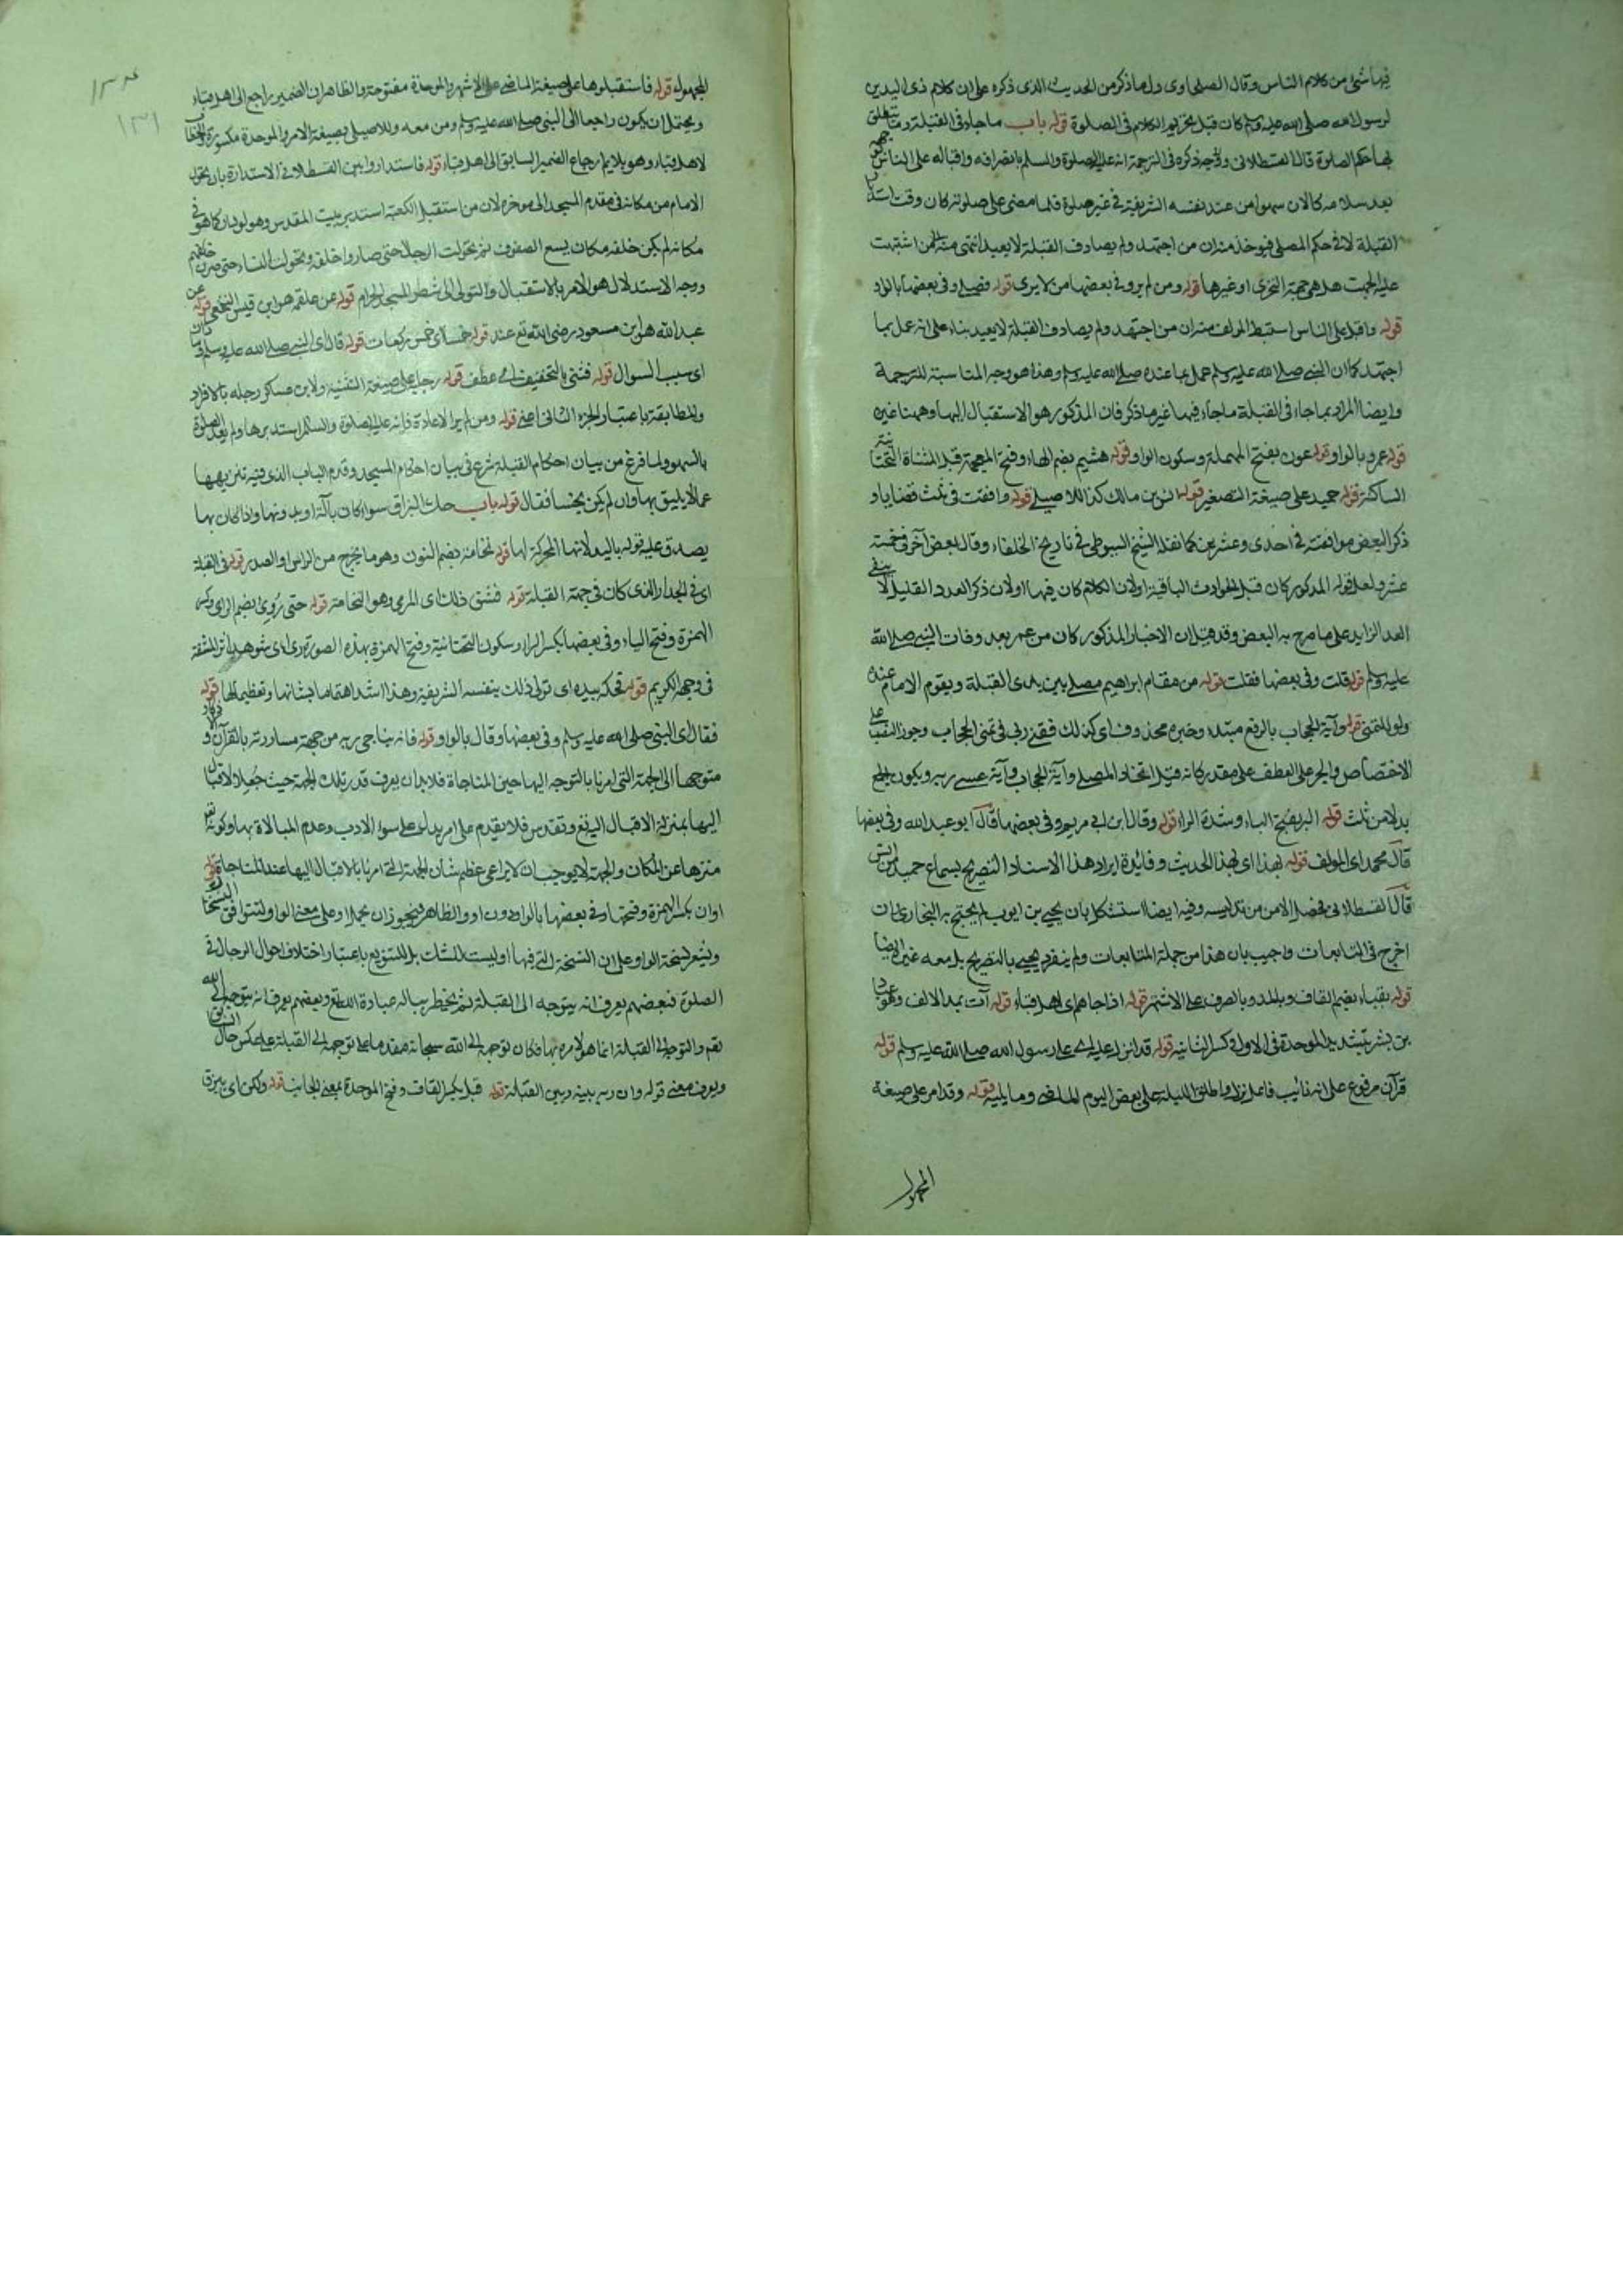 فيها شئ من كلام الناس وقال الصحاوى دل ما ذكر من الحديث الذى ذكره على ان كلام ذى اليدين
لرسول الله صلى الله عليه وسلم كان قبل تحريم الكلام فى الصلوة قوله باب ما جاء فى القبلة وما يتعلق
بها حكم الصلوة قال القسطلانى ووجه ذكره فى الترجمة انه عليه الصلوة والسلم بانصرافه واقباله على الناس بوجهه
بعد سلامه كالان سهوا من عند نفسه الشريفة فى غير صلوة فلما مضى على صلوته كان وقت
القبلة لا فى حكم المصلى فيوخذ منه ان من اجتهد ولم يصادف القبلة لا يعيد انتهى من اشتبهت
عليه الجهت هل هى جهة التحرى او غيرها قوله ومن لم يرو فى بعضها من لا يرى قوله فصلى وفى بعضها بالواو
قوله واقبل على الناس استنبط المولف منه ان من اجتهد ولم يصادف القبلة لا يعيد بناء على انه عمل بما
اجتهد كما ان النبى صلى الله عليه وسلم عمل بما عنده صلى الله عليه وسلم وهذا هو وجه المناسبة للترجمة
وايضا المراد بما جاء فى القبلة ما جاء فيها غير ما ذكر فان المذكور هو الاستقبال اليها وههنا غيره
قوله عمرو بالواو قوله عون بفتح المهملة وسكون الواو قوله هشيم بضم الهاء وفتح المعجمة قبل المثناة التحتانية
الساكنة قوله حميد على صيغة التصغير قوله انس بن مالك كذا للاصيلى قوله وافقت فى ثلث قضايا و
ذكر البعض موافقته فى احدى وعشرين كما نقله الشيخ السيوطى فى تاريخ الخلفاء وقال بعض آخر فى خمسة
عشر ولعل قوله المذكور كان قبل الحوادث الباقية اولان الكلام كان فيها اولان ذكر العدد القليل لا ينفى
العدد الزايد على ما صرح به البعض وقد قيل ان الاخبار المذكور كان من عمر بعد وفات النبى صلى الله
عليه وسلم قوله قلت وفى بعضها فقلت قوله من مقام ابراهيم مصلى بين يدى القبلة ويقوم الامام عنده
ولو للتمنى قوله وآية الحجاب بالرفع مبتدء وخبره محذوف اى كذلك فقد ربى فى تمنى الحجاب وجوز النصب على
الاختصاص والجر على العطف على مقدر كانه قيل اتخاذ المصلى وآية الحجاب وآية عسى ربه ويكون الجمع
بدلا من ثلث قوله البر بفتح الباء وشدة الراء قوله وقال ابن ابى مريم وفى بعضها قال ابو عبد الله وفى بعضها
قال محمد اى المولف قوله بهذا اى بهذا الحديث وفائدة ايراد هذا الاسناد التصريح بسماع حميد من انس
قال القسطلانى فحصل الامن من تدليسه وفيه ايضا استشكل بان يحيى بن ايوب لم يحتج به البخارى ان
اخرج فى المتابعات واجيب بان هذا من جملة المتابعات ولم ينفرد يحيى بالتصريح بل معه غيره ايضا
قوله بقباء بضم القاف وبالمد وبالصرف على الاشهر قوله اذا جاءهم اى اهل قباء قوله آت بمد الالف وهو عباد
بن بشر بتشديد الموحدة فى الاول وكسر الثانية قوله قد انزل عليه اى على رسول الله صلى الله عليه وسلم قوله
قرآن مرفوع على انه نائب فاعل انزل واطلق الليلة على بعض اليوم الماضى وما يليه قوله وقد امر على صيغة
المجهول
١٣١
المجهول قوله فاستقبلوها على صيغة الماضى على الاشهر بالموحدة مفتوحة والظاهر ان الضمير راجع الى اهل قباء
ويحتمل ان يكون راجعا الى النبى صلى الله عليه وسلم ومن معه وللاصيلى بصيغة الامر والموحدة مكسورة والخطاب
لاهل قباء وهو يلايم ارجاع الضمير السابق الى اهل قباء قوله فاستداروا بين القسطلانى الاستدارة بان تحول
الامام من مكانه فى مقدم المسجد الى موخره لان من استقبل الكعبة استدبر بيت المقدس وهو لو دار كما هو فى
مكانه لم يكن خلفه مكان يسع الصفوف ثم تحولت الرجال حتى صاروا خلفه وتحولت النساء حتى صرن خلفهم
ووجه الاستدلال هو الامر بالاستقبال والتولى الى شطر المسجد الحرام قوله عن علقمة هو ابن قيس النخعى قوله عن
عبد الله هو ابن مسعود رضى الله تع عنه قوله خمسا اى خمس ركعات قوله قال اى النبى صلى الله عليه وسلم
اى سبب السوال قوله فثنى بالتخفيف اى عطف قوله رجليه على صيغة التثنية ولابن عساكر رجله بالافراد
والمطابقة باعتبار الجزء الثانى اعنى قوله ومن لم ير الاعادة فانه عليه الصلوة والسلم استدبرها ولم يعد الصلوة
بالسهو ولما فرغ من بيان احكام القبلة شرع فى بيان احكام المسجد وقدم الباب الذى فيه تنزيهها
عما لا يليق بها وان لم يكن نجسا فقال قوله باب حك البزاق سواء كان بآلة او بدونها واذا كان بها
يصدق عليه قوله باليد لانها المحركة لها قوله نخامة بضم النون وهو ما يخرج من الراس او الصدر قوله فى القبلة
اى فى الجدار الذى كان فى جهة القبلة قوله فشق ذلك اى المرمى وهو النخامة قوله حتى رُوِىَ بضم الراى وكسر
الهمزة وفتح الياء وفى بعضها بكسر الراء وسكون التحتانية وفتح الهمزة بهذه الصورة رى اى شوهد اثر المشقة
فى وجهه الكريم قوله فحكه بيده اى تولى ذلك بنفسه الشريفة وهذا اشد اهتماما بشانها وتعظيما لها قوله
فقال اى النبى صلى الله عليه وسلم وفى بعضها وقال بالواو قوله فانه يناجى ربه من جهة مساررته بالقرآن و
متوجها الى الجهة التى امرنا بالتوجه اليها حين المناجاة فلا بد ان يعرف قدر تلك الجهة حيث جعل الاقبال
اليها بمنزلة الاقبال اليه تع وتقدس فلا يقدم على امر يدل على سوء الادب وعدم المبالاة بها وكونه تع
منزها عن المكان والجهة لا يوجب ان لا يراعى عظم شان الجهة التى امرنا بالاقبال اليها عند المناجاة قوله
اوان بكسر الهمزة وفتحها وفى بعضها بالواو دون او والظاهر فيجوز ان يحمل او على معنى الواو لتتوافق النسختان
ويشعر نسخة الواو على ان النسخة التى فيها او ليست للشك بل للتنويع باعتبار اختلاف احوال الرجال فى
الصلوة فبعضهم يعرف انه يتوجه الى القبلة ثم يخطر بباله عبادة الله تع وبعضهم يعرف انه يتوجه الى الله
نعم والتوجه الى القبلة انما هو لامره بها فكان توجهه الى الله سبحانه مقدما على توجهه الى القبلة على عكس حال
ويعرف معنى قوله وان ربه بينه وبين القبلة قوله قبل بكسر القاف وفتح الموحدة بمعنى الجانب قوله ولكن اى يبزق